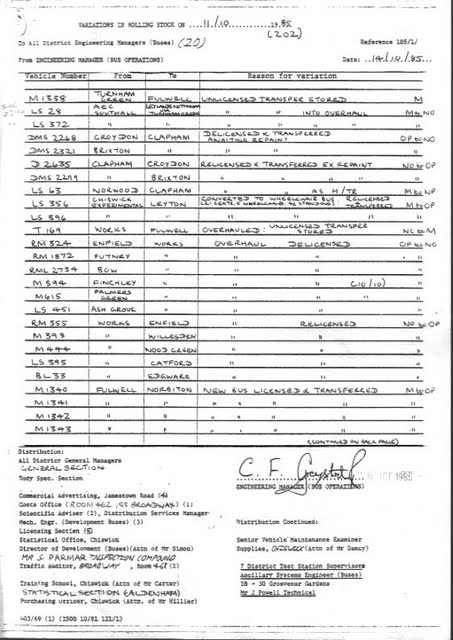 VARIATIONS IN ROLLING STOCK ON 11/10 1985
(202)
To All District Engineering Managers (Buses) (20) Reference 105/1/
From ENGINEERING MANAGER (BUS OPERATIONS) Date: 14/10/85
Vehicle Number From To Reason for variation
M1338 TURNHAM GREEN FULWELL UNLICENSED TRANSFER STORED M
LS 28 AEC SOUTHALL INTO OVERHAUL M to NO
LS 372 " " " "
DMS 2268 CROYDON CLAPHAM DELICENSED & TRANSFERRED AWAITING REPAINT OP to NO
DMS 2321 BRIXTON " " " "
D 2635 CLAPHAM CROYDON RELICENSED & TRANSFERRED EX REPAINT NO to OP
DMS 2219 " BRIXTON " " " "
LS 63 NORWOOD CLAPHAM " " AS H/TR M to NP
LS 356 CHISWICK EXPERIMENTAL LEYTON CONVERTED TO WHEELCHAIR BUS: RELICENSED TRANSFERRED M to OP
LS 396 " " " " "
T 169 WORKS FULWELL OVERHAULED: UNLICENSED TRANSFER STORED NC to M
RM 324 ENFIELD WORKS OVERHAUL DELICENSED OP to NO
RM 1872 PUTNEY " " " "
RML 2734 BOW " " " "
M 594 FINCHLEY " " " (10/10) "
M615 PALMERS GREEN " " " "
LS 451 ASH GROVE " " " "
RM 555 WORKS ENFIELD " RELICENSED NO to OP
M 393 " WILLESDEN " " "
M 444 " WOOD GREEN " " "
LS 395 " CATFORD " " "
BL 33 " EDGWARE " " "
M1340 FULWELL NORBITON NEW BUS LICENSED & TRANSFERRED M to OP
M1341 " " " " " "
M1342 " " " " " "
M1343 " " " " " "
(CONTINUED ON BACK PAGE)
Distribution:
All District General Managers
GENERAL SECTION
Body Spec. Section
C. F.
OCT 1985
ENGINEERING MANAGER (BUS OPERATIONS)
Commercial Advertising, Jamestown Road (4)
Costs Office (ROOM 462, 55 BROADWAY) (1)
Scientific Adviser (2), Distribution Services Manager
Mech. Engr. (Development Buses) (3)
Licensing Section (5)
Statistical Office, Chiswick
Director of Development (Buses)(Attn of Mr Simon)
MR S PARMAR INSPECTION COMPOUND
Traffic Auditor, BROADWAY, Room 468 (2)
Training School, Chiswick (Attn of Mr Carter)
STATISTICAL SECTION (ALDENHAM)
Purchasing Officer, Chiswick (Attn. of Mr Hillier)
Distribution Continued:
Senior Vehicle Maintenance Examiner
Supplies, CHISWICK (Attn of Mr Dancy)
7 District Test Station Supervisors
Ancillary Systems Engineer (Buses)
28 - 30 Grosvenor Gardens
Mr J Powell Technical
403/69 (1) (1500 10/81 121/1)